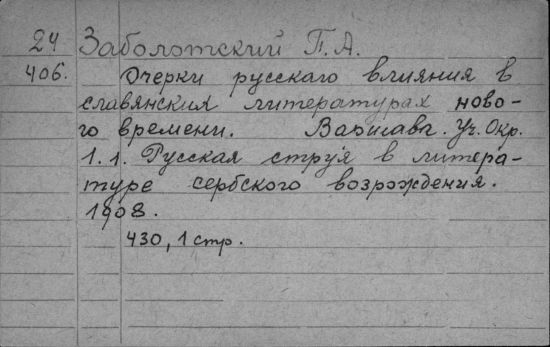 24 Заболотский П. А.
406. Очерки русскаго влияния в
славянских литературах ново-
го времени. Варшава. Уч. Окр.
1.1. Русская струя в литера-
туре сербского возрождения.
1908.
430, 1 стр.